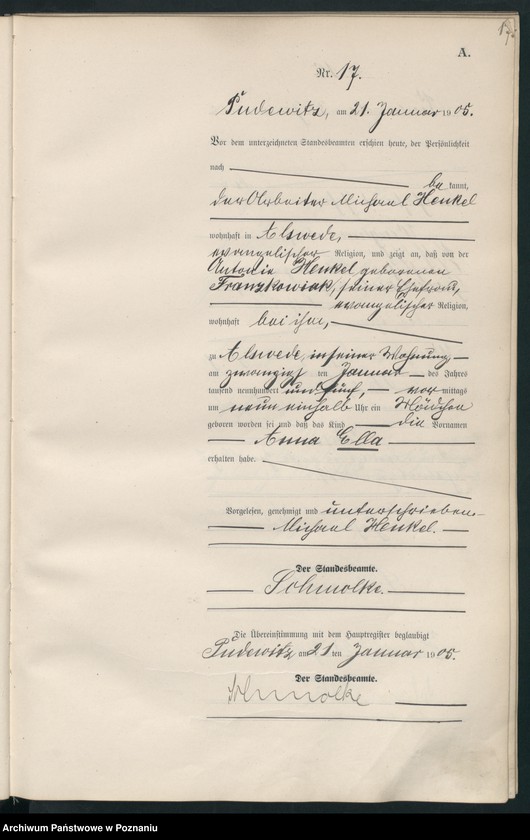 17.
A.
Nr. 17.
Pudewitz, am 21. Januar 1905.
Vor dem unterzeichneten Standesbeamten erschien heute, der Persönlichkeit
nach
be kannt,
der Arbeiter Michael Henkel
wohnhaft in Alswede,
evangelischer Religion, und zeigt an, daß von der
Antonie Henkel geborenen
Franzkowiak, seiner Ehefrau,
evangelischer Religion,
wohnhaft bei ihm,
zu Alswede, in seiner Wohnung
am zwanzigsten Januar des Jahres
tausend neunhundert und fünf, vor mittags
um neun einhalb Uhr ein Mädchen
geboren worden sei und daß das Kind die Vornamen
Anna Ella
erhalten habe.
Vorgelesen, genehmigt und unterschrieben
Michael Henkel.
Der Standesbeamte.
Schmolke.
Die Übereinstimmung mit dem Hauptregister beglaubigt
Pudewitz am 21 ten Januar 1905.
Der Standesbeamte.
Schmolke
Archiwum Państwowe w Poznaniu